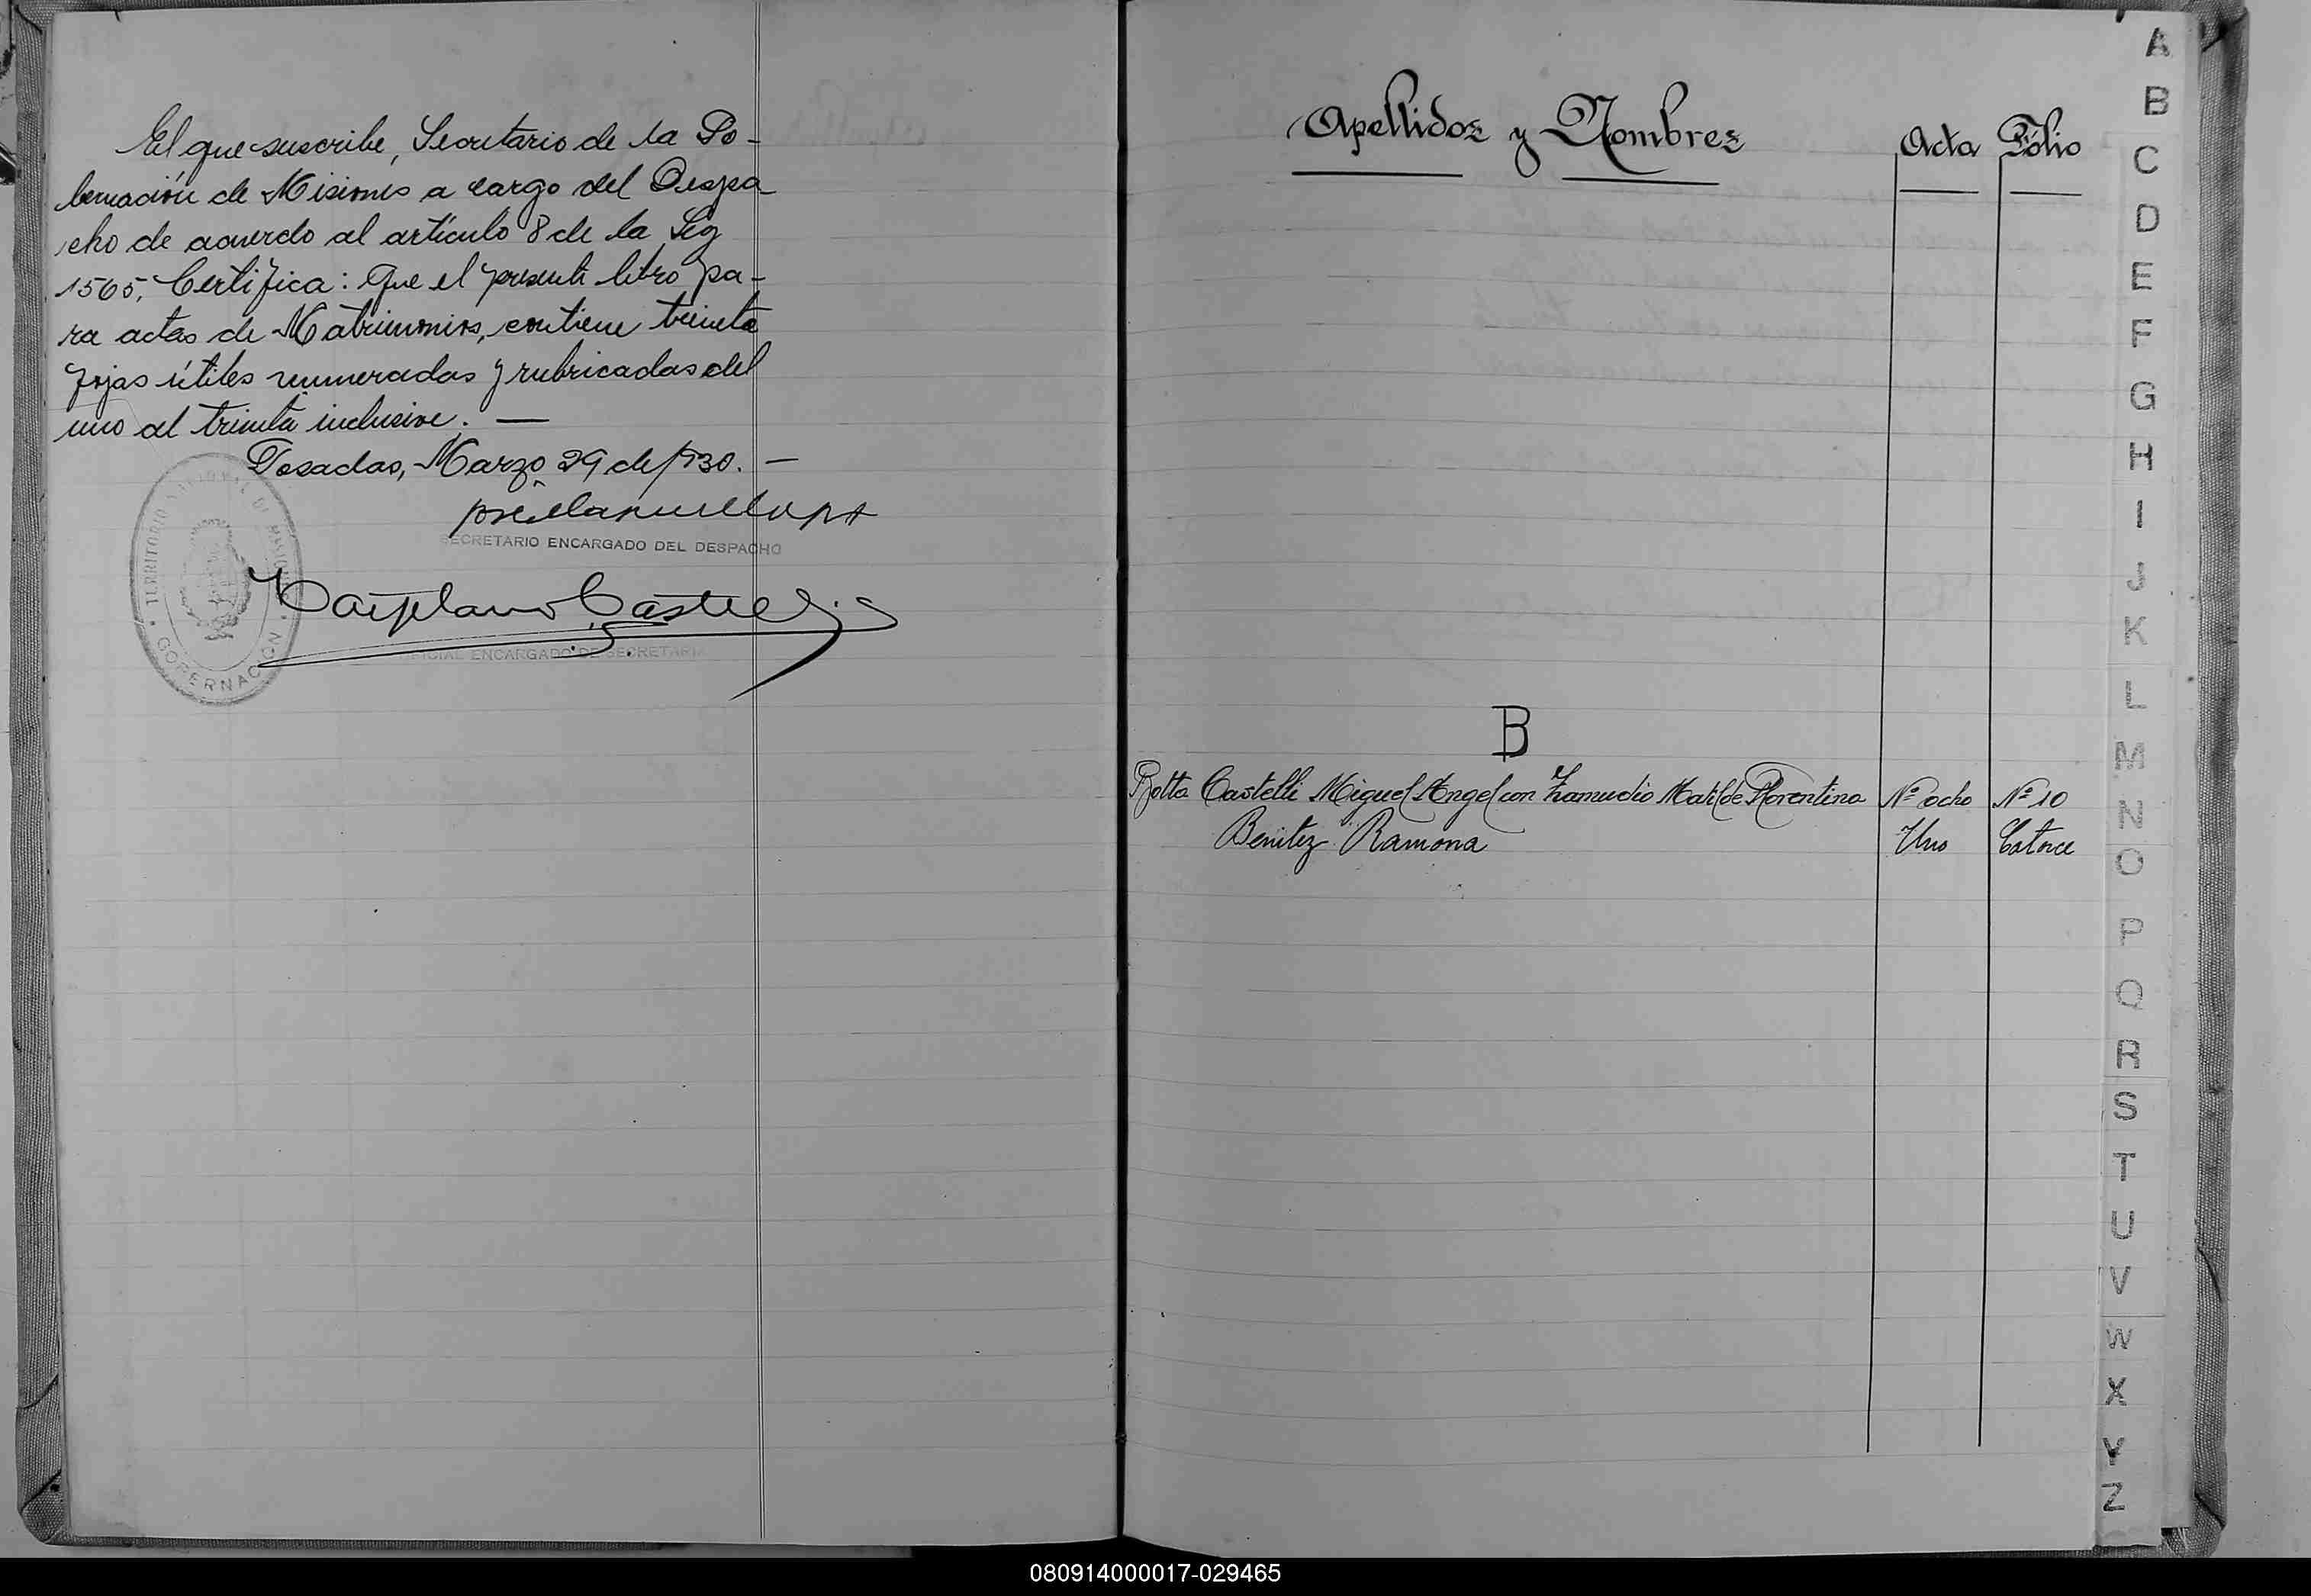 El que suscribe, Secretario de la Go-
bernación de Misiones a cargo del Despa-
cho de acuerdo al artículo 8 de la Ley
1565, Certifica: Que el presente libro pa-
ra actas de Matrimonios, contiene treinta
fojas útiles numeradas y rubricadas del
uno al treinta inclusive. —
Posadas, Marzo 29 de 1930. —
SECRETARIO ENCARGADO DEL DESPACHO
OFICIAL ENCARGADO DE SECRETARIA
TERRITORIO NACIONAL DE MISIONES
GOBERNACION
Apellidos y Nombres Acta Fólio
B
Botta Castelli Miguel Angel con Zamudio Matilde Florentina Nº ocho Nº 10
Benitez Ramona Uno Catorce
A
B
C
D
E
F
G
H
I
J
K
L
M
N
O
P
Q
R
S
T
U
V
W
X
Y
Z
080914000017-029465